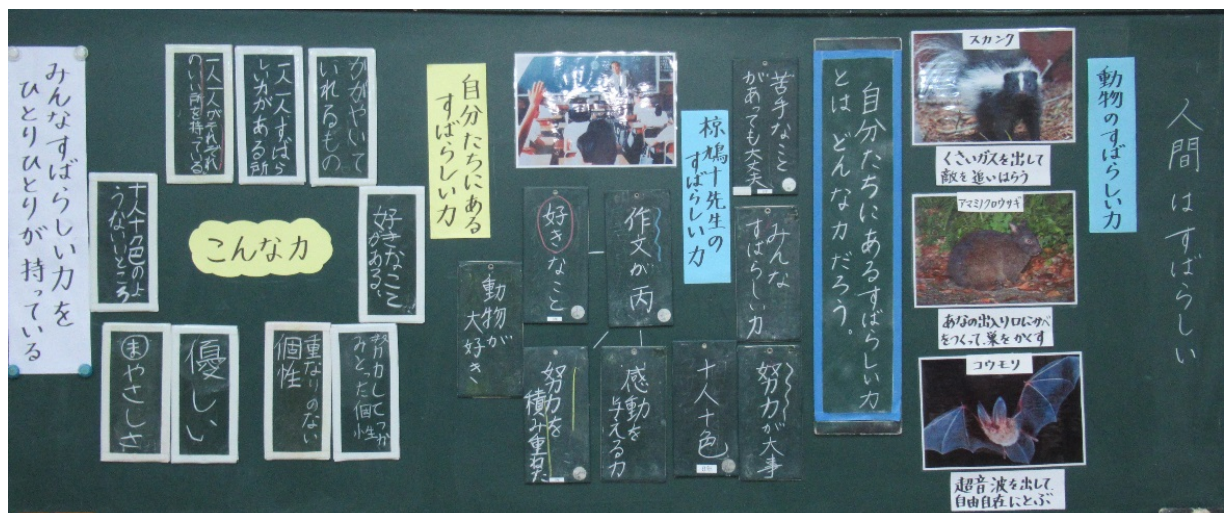 人間はすばらしい
動物のすばらしい力
スカンク
くさいガスを出して
敵を追いはらう
アマミノクロウサギ
あなの出入り口にかべ
をつくって、巣をかくす
コウモリ
超音波を出して、
自由自在にとぶ
自分たちにあるすばらしい力
とは、どんな力だろう。
苦手なこと
があっても大丈夫
みんな
すばらしい力
努力が大事
十人十色
椋鳩十先生の
すばらしい力
作文が丙
好きなこと
感動を
与える力
努力を
積み重ねた
動物が
大好き
自分たちにある
すばらしい力
こんな力
かがやいて
いれるもの
一人一人すばら
しい力がある所
一人一人がそれぞれ
のいい所を持っている
好きなこと
がある、
十人十色のよ
うないいところ
努力してつか
みとった個性
重なりのない
個性
優しい
やさしさ
みんなすばらしい力を
ひとりひとりが持っている